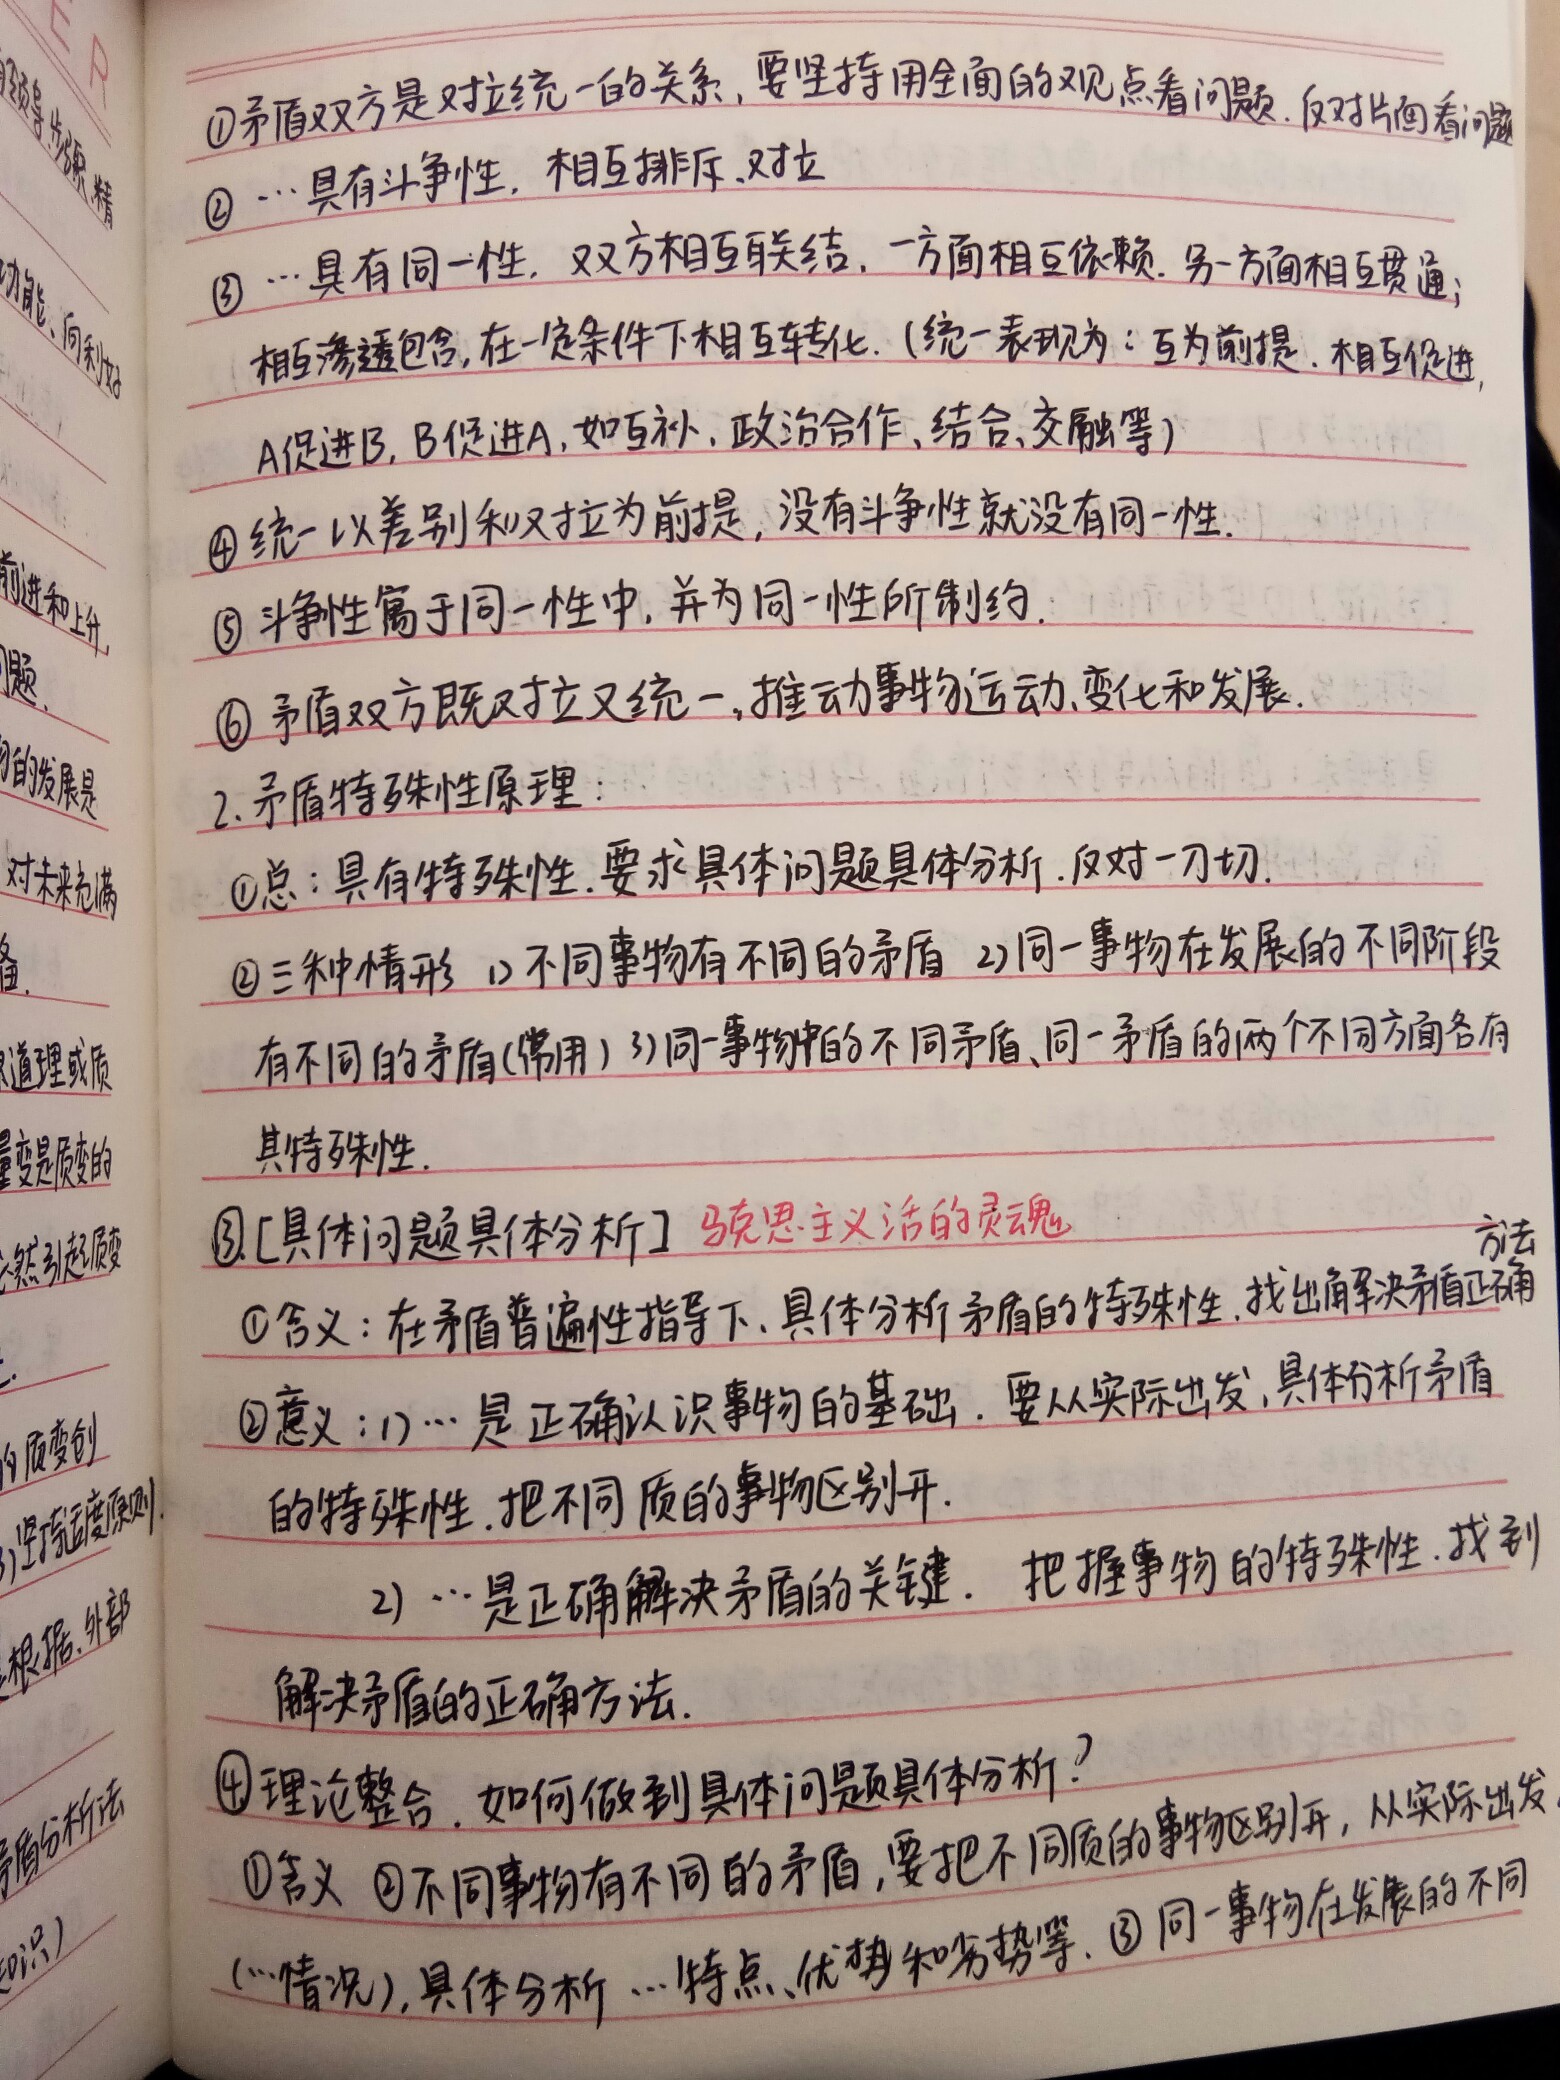 ER
精
功能、向利好
前进和上升
问题.
的发展是
对未来充满
备.
道理或质
量变是质变的
必然引起质变
的质变创
坚持适度原则.
是根据.外部
矛盾分析法
知识)
①矛盾双方是对立统一的关系,要坚持用全面的观点看问题.反对片面看问题
②…具有斗争性,相互排斥、对立
③…具有同一性,双方相互联结,一方面相互依赖.另一方面相互贯通;
相互渗透包含,在一定条件下相互转化.(统一表现为:互为前提.相互促进,
A促进B,B促进A,如互补、政治合作、结合、交融等)
④统一以差别和对立为前提,没有斗争性就没有同一性.
⑤斗争性寓于同一性中,并为同一性所制约.
⑥矛盾双方既对立又统一,推动事物运动、变化和发展.
2.矛盾特殊性原理:
①总:具有特殊性.要求具体问题具体分析.反对一刀切.
②三种情形 1)不同事物有不同的矛盾 2)同一事物在发展的不同阶段
有不同的矛盾(常用)3)同一事物中的不同矛盾、同一矛盾的两个不同方面各有
其特殊性.
③.[具体问题具体分析] 马克思主义活的灵魂
方法
①含义:在矛盾普遍性指导下、具体分析矛盾的特殊性,找出解决矛盾正确
②意义:1)…是正确认识事物的基础.要从实际出发,具体分析矛盾
的特殊性.把不同质的事物区别开.
2)…是正确解决矛盾的关键.把握事物的特殊性.找到
解决矛盾的正确方法.
④.理论整合.如何做到具体问题具体分析?
①含义 ②不同事物有不同的矛盾,要把不同质的事物区别开,从实际出发
(…情况),具体分析…特点、优势和劣势等.③同一事物在发展的不同